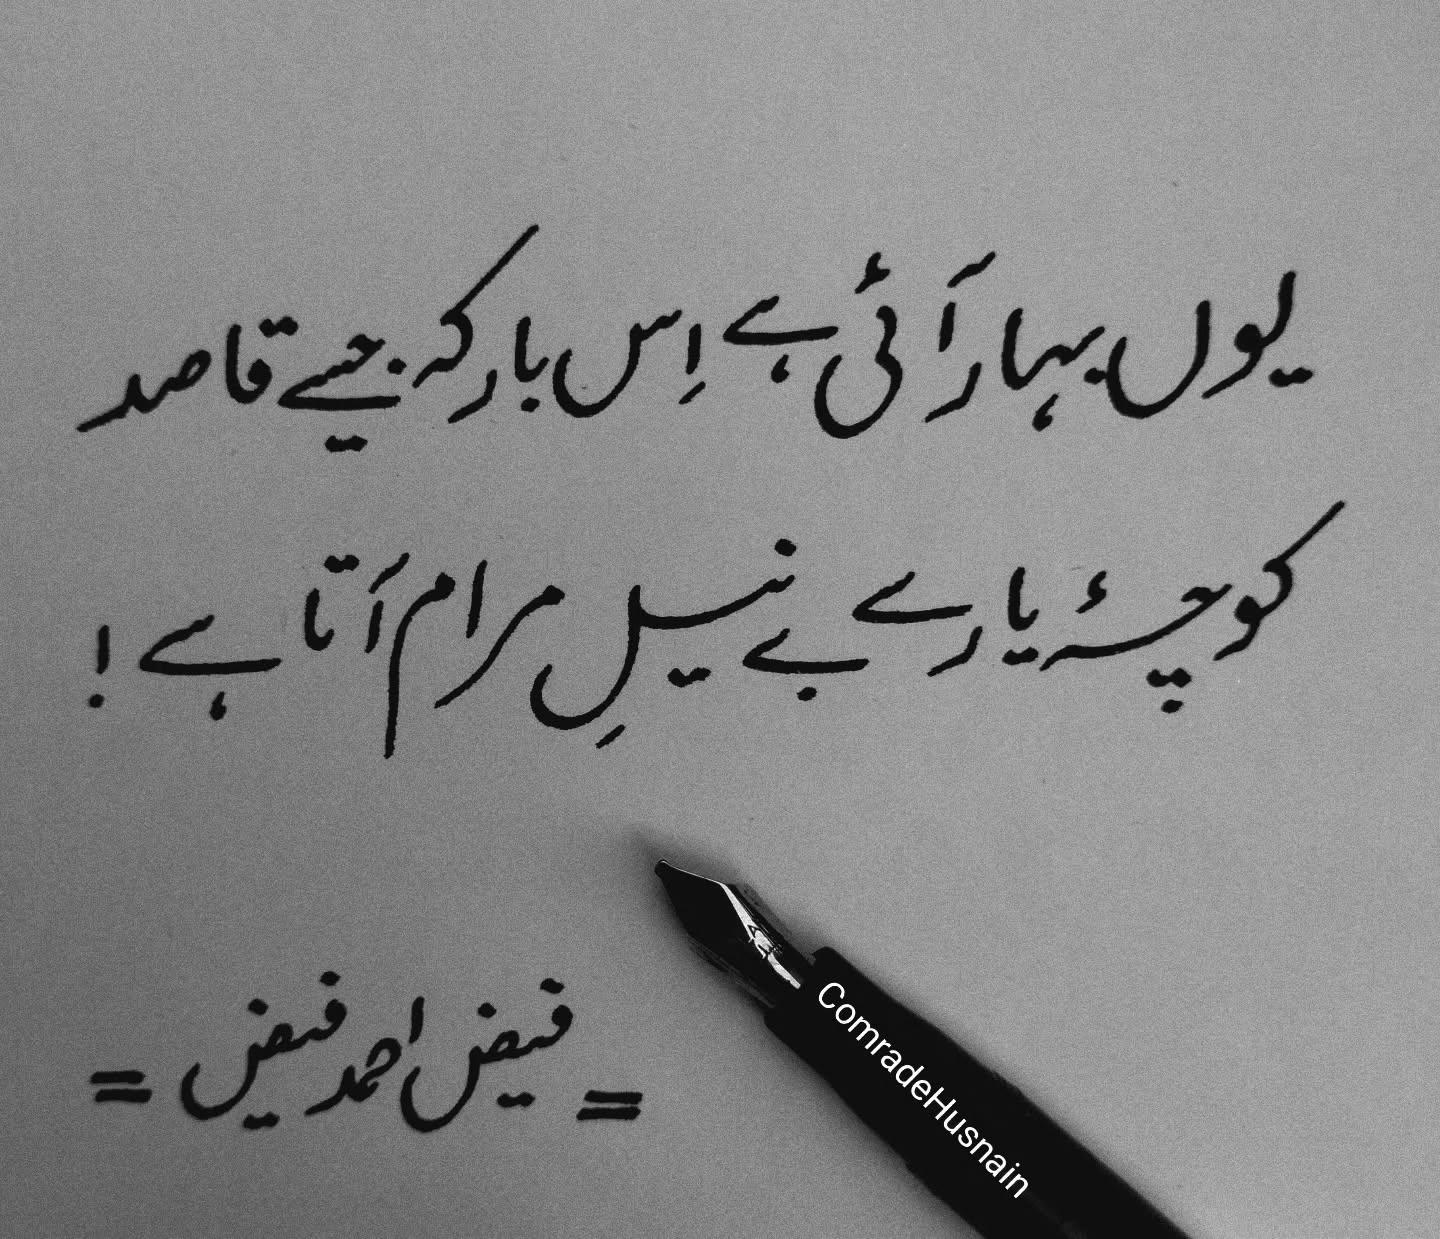 یوں بہار آئی ہے اِس بار کہ جیسے قاصد
کوچۂ یار سے بے نیلِ مرام آتا ہے !
= فیض احمد فیض =
ComradeHusnain